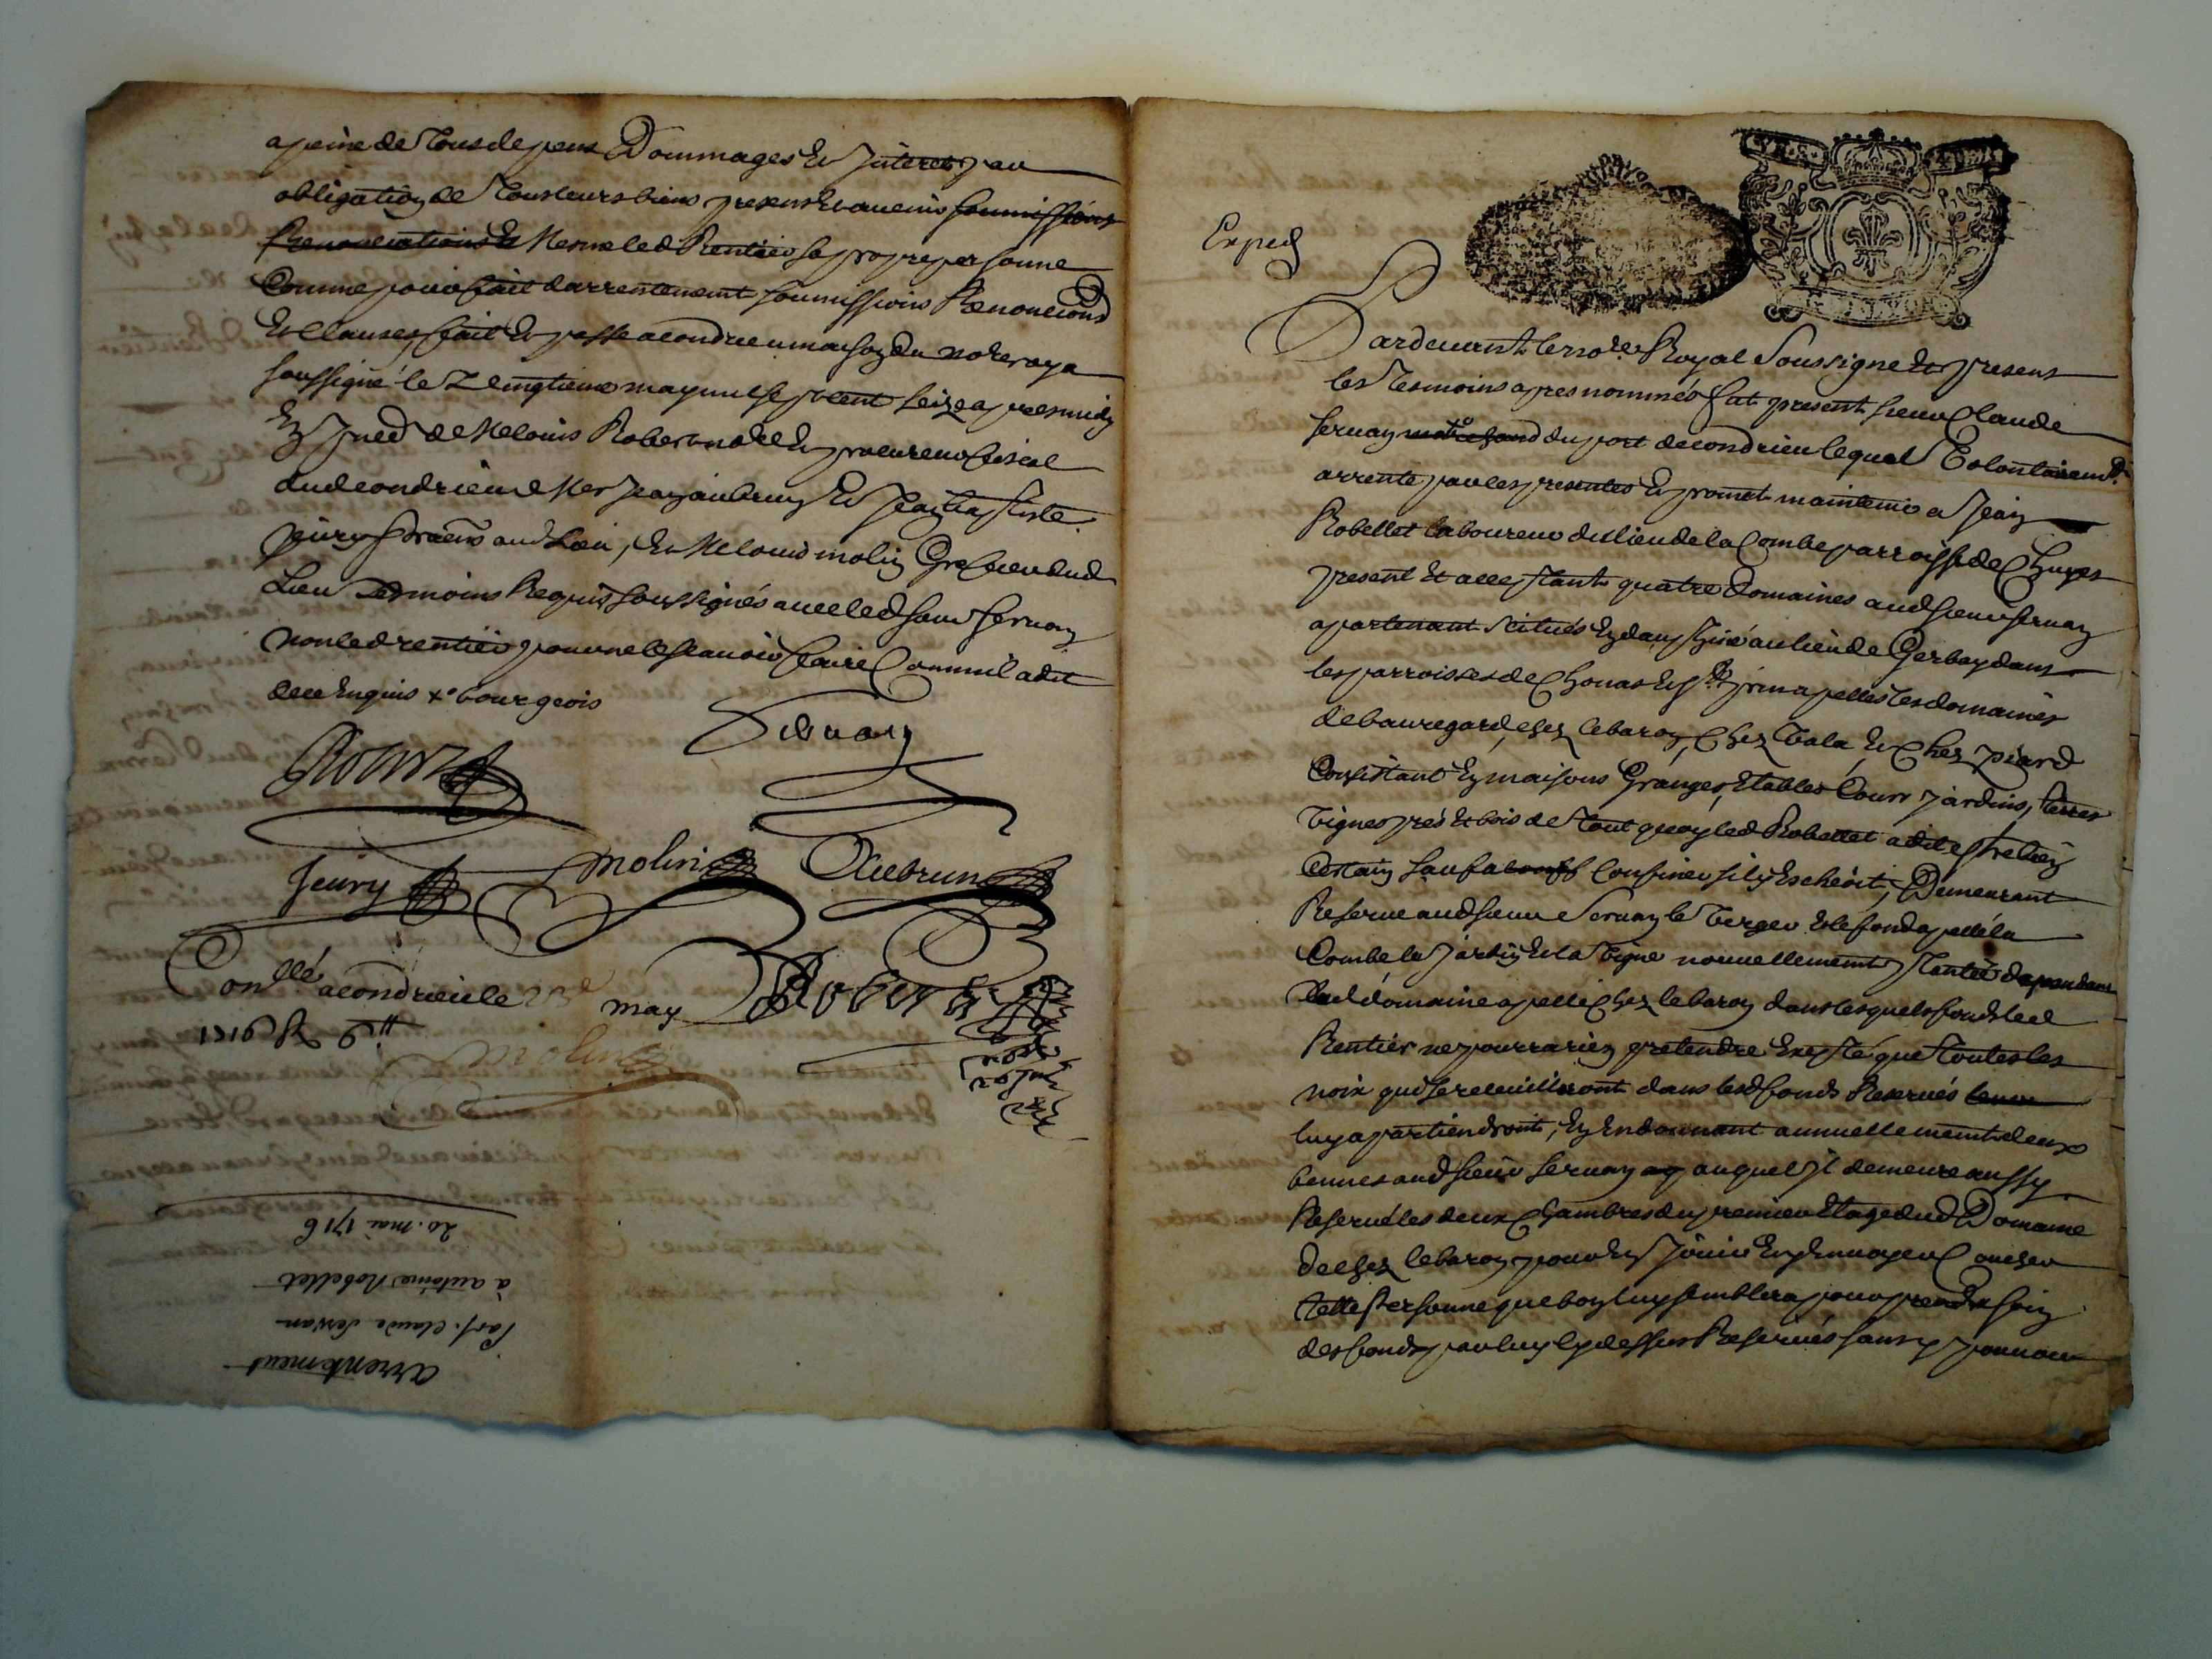 a peine de tous depens Dommages Et Jnterets par
obligation de tous leurs biens presens Et avenir soumissions
Renonciations Et Mesme led Rentier sa propre personne
Comme pour fait darrentement soumissions Renoncions
Et Clauses, fait Et passé a condrieu maison du no.re roya
soussigné le Vingtieme may mil sept cent seize apres midy
En de Me louis Robert no.re Et procureur fiscal
dud condrieu Mes Jean aubrun Et Jean baptiste
feury aud Lieu, Et Me louis molin Greffier dud
Lieu Tesmoins Requis soussignés avec led sieur servan
non led rentier pour ne le scavoir faire Comm'il a dit
de ce Enquis x° bourgeois
Servan
feury
molin
Aubrun
Conllé a condrieu le may Robert
1716
molin
20. mai 1716
à antoine Robellet
Claude Servan
arrentement
Exped
Pardevant le no.re Royal Soussigné Et presens
les tesmoins apres nommés fut present sieur Claude
servan du port de condrieu lequel Volontairem.t
arrente par les presentes Et promet maintenir a Jean
Robellet laboureur du lieu de la Combe parroisse de Chuyer
present Et acceptant quatre Domaines aud sieur servan
apartenant scitués En dauphiné au lieu de Gerbay dans
les parroisses de Chonas Et St prin apelles les domaines
de bauregard, chez le baron, Chez Vala, Et Chez piard
Consistant En maisons Granges, Etables Cours jardins, terres
Vignes prés Et bois de tout quoy led Robellet a dit Estre bien
Certain sauf a Confiner sil y Eschéoit, Demeurant
Reservé aud sieur Servan le Verger Et le fond apellé la
Combe le jardin Et la Vigne nouvellement plantée dependans
dud domaine apellé Chez le baron dans lesquels fonds led
Rentier ne pourra rien pretendre Excepté que toutes les
noix qui se receuilliront dans lesd fonds Reservés
luy apartiendront, En En donnant annuellement deux
bennes aud sieur servan auquel Jl demeure aussy
Reservé les deux Chambres du premier Etage dud Domaine
de chez le baron pour En Jouir En Envoyer Coucher
telle personne que bon luy semblera pour prendre soin
des fonds par luy Cy dessus Reservés sans y pouvoir